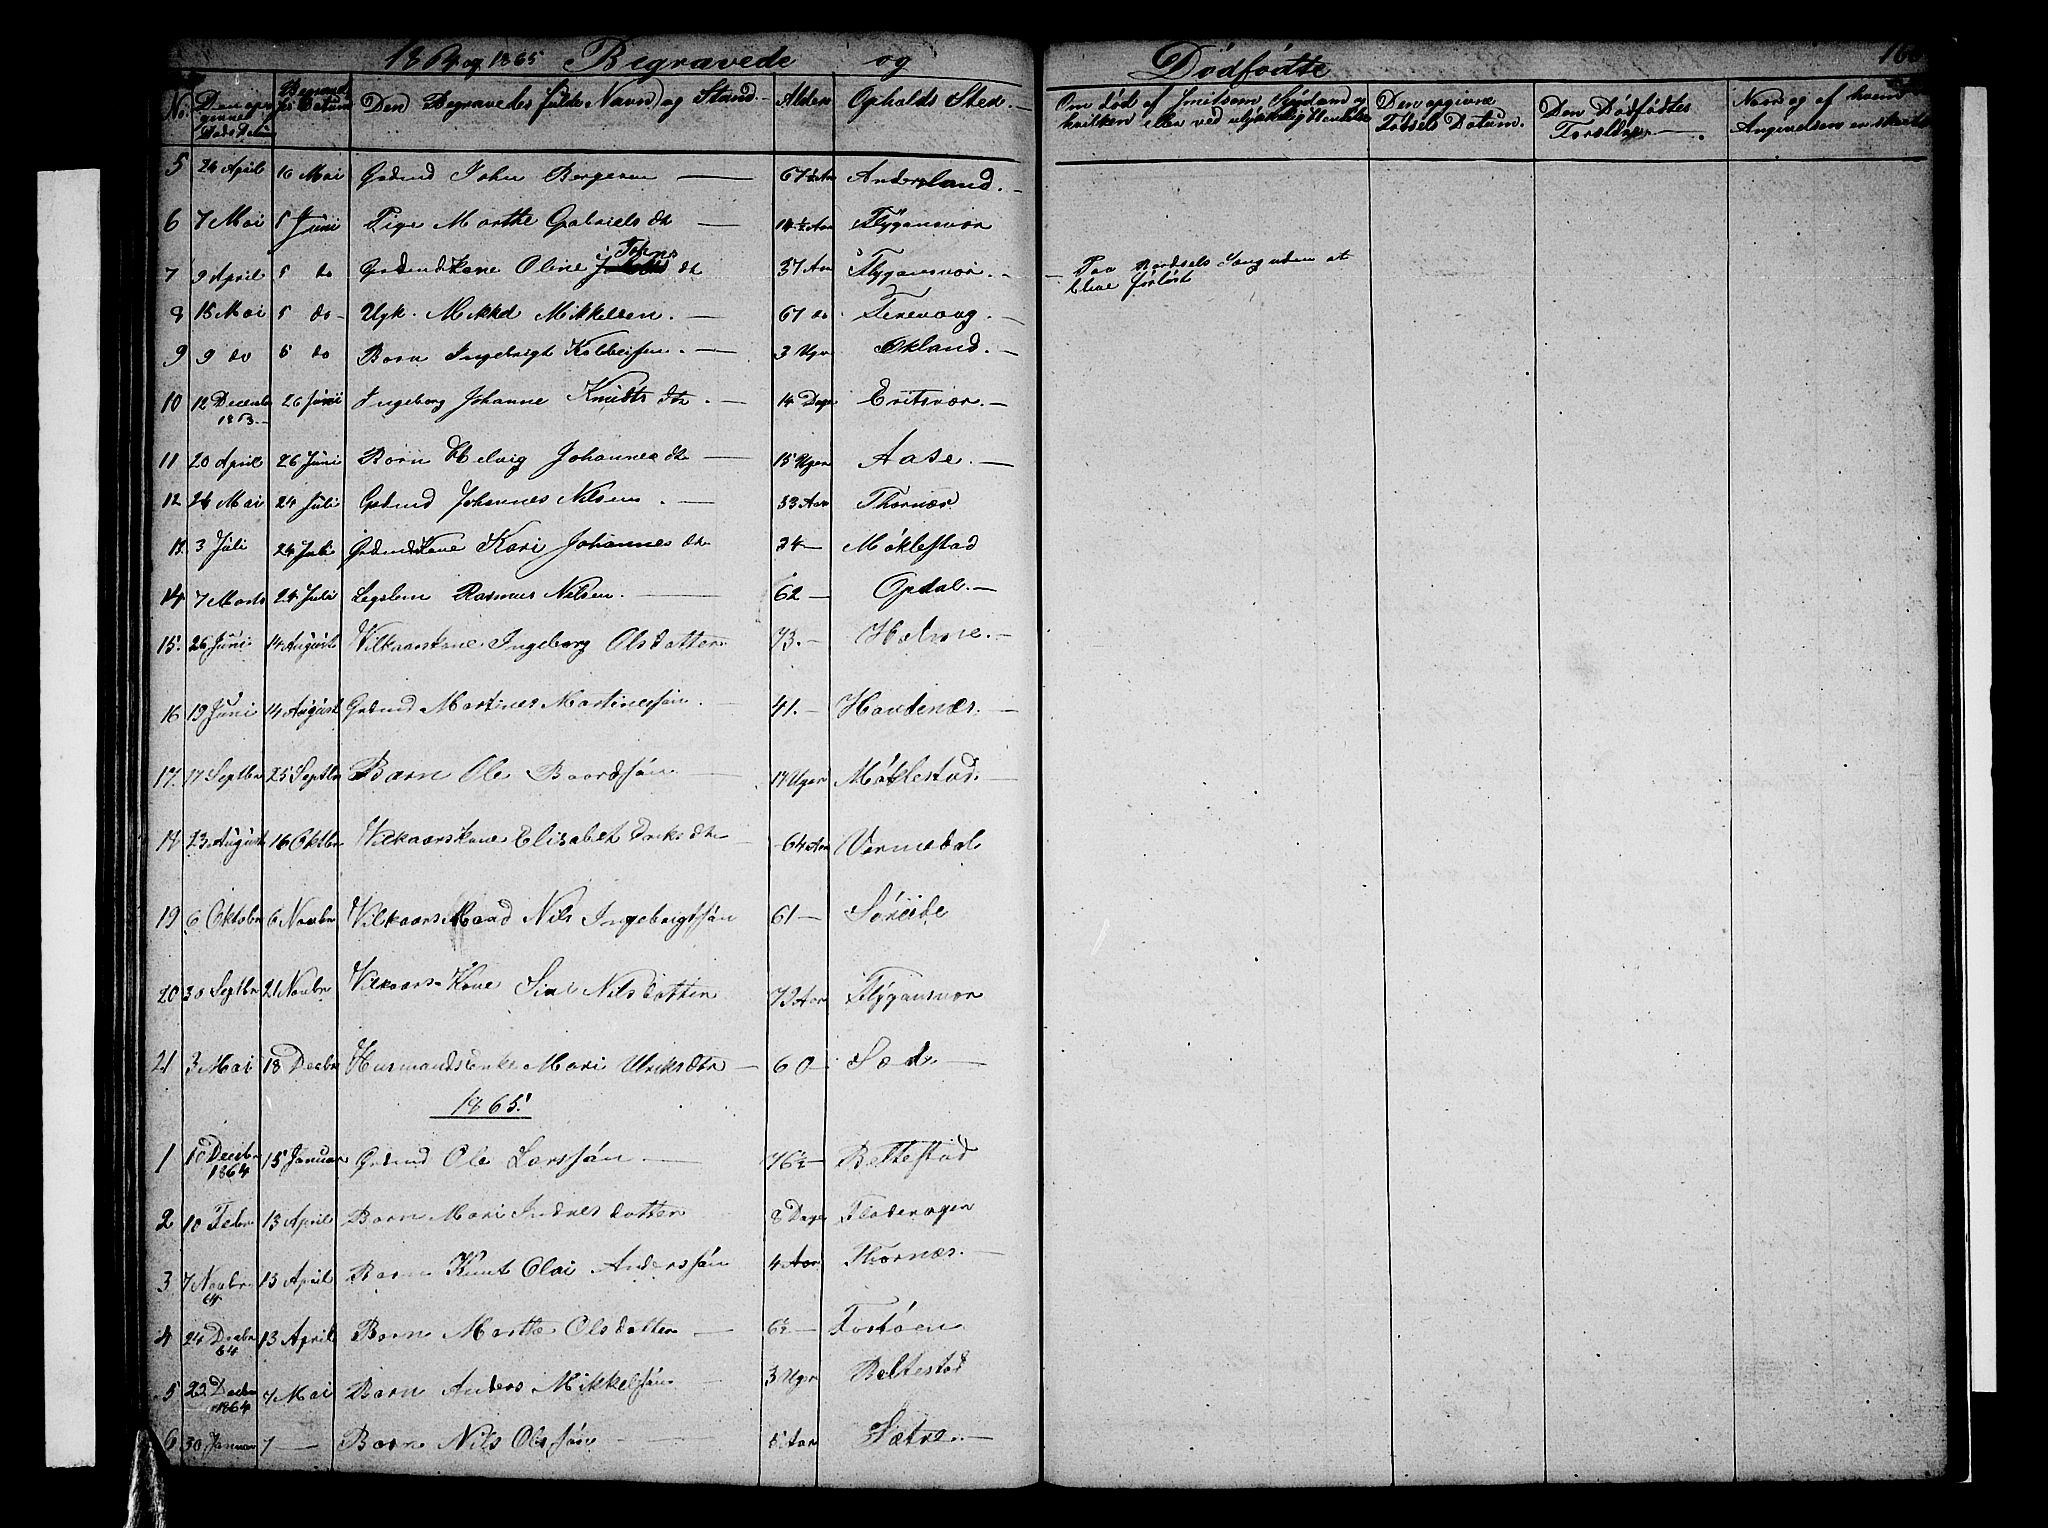 1864 og 1865 Begravede og Dødfødte
No. Den opgivnes Døds Datum Begravelses Datum Den Begravedes fulde Navn og Stand Alder Opholds Sted. Om død af smitsom Sygdom og hvilken eller ved ulykkelig Hendelse Den opgivne Fødsels Datum. Den Dødfødtes Forældre Naar og af hvem Angivelsen er skeet
5 24 April 16 Mai Grdmd John Bergesen 67½ Aar Andersland.
6 7 Mai 5 Juni Pige Marthe Gabriels dtr 14½ Aar Flygansvær
7 9 April 5 do Grdmds Kone Oline Johns dtr 37 Aar Flygansvær. Paa Bardsels Seng uden at blive forløst
8 15 Mai 5 do Ugk. Mikkel Mikkelsen. 67 do
9 9 do 5 do Barn Ingebrigt Kolbeisen. 3 Uger Økland.
10 12 Decembr 1863 26 Juni Ingeborg Johanne Knudts dtr. 14 Dage
11 20 April 26 Juni Barn Helvig Johannes dtr 15 Uger Aase.
12 24 Mai 24 Juli Grdmd Johannes Nilsen. 53 Aar Thornæs
13 3 Juli 24 Juli Grdmds Kone Kari Johannes dtr 34 Møklestad
14 7 Marts 24 Juli Legslem Rasmus Nilsen. 62 Opdal.
15. 26 Juni 14 August Vilkaarskone Ingeborg Olsdatter 73. Holme.
16 19 Juni 14 August Grdmd Martines Martinessøn. 41. Hovdenæs.
17. 17 Septbr 25 Septbr Barn Ole Baardsøn 17 Uger Møklestad.
18 23 August 16 Oktbr Vilkaarskone Elisabet Eriks dtr 64 Aar Vermedal
19 6 Oktobr 6 Novbr Vilkaars Mand Nils Ingebrigtsøn 61 Søreide
20 30 Septbr 21 Novbr Vilkaars Kone Siri Nilsdatter 72 Aar Flygansvær
21 3 Mai 18 Decbr Husmandsenke Mari Ulriksdtr 60
1865.
1 10 Decbr 1864 15 Januar Grdmd Ole Larssøn 76½ Beltestad
2 10 Febr 13 April Barn Mari Indres datter 8 Dage Flodevagen
3 7 Novbr 64 13 April Barn Knut Olai Anderssøn 4 Aar Thornæs.
4 24 Decbr 64 13 April Barn Marthe Olsdatter 6½
5 23 Decbr 1864 7 Mai Barn Anders Mikkelsøn 3 Uger Beltestad
6 30 Januar 7 Barn Nils Olssøn Aar Sætre.